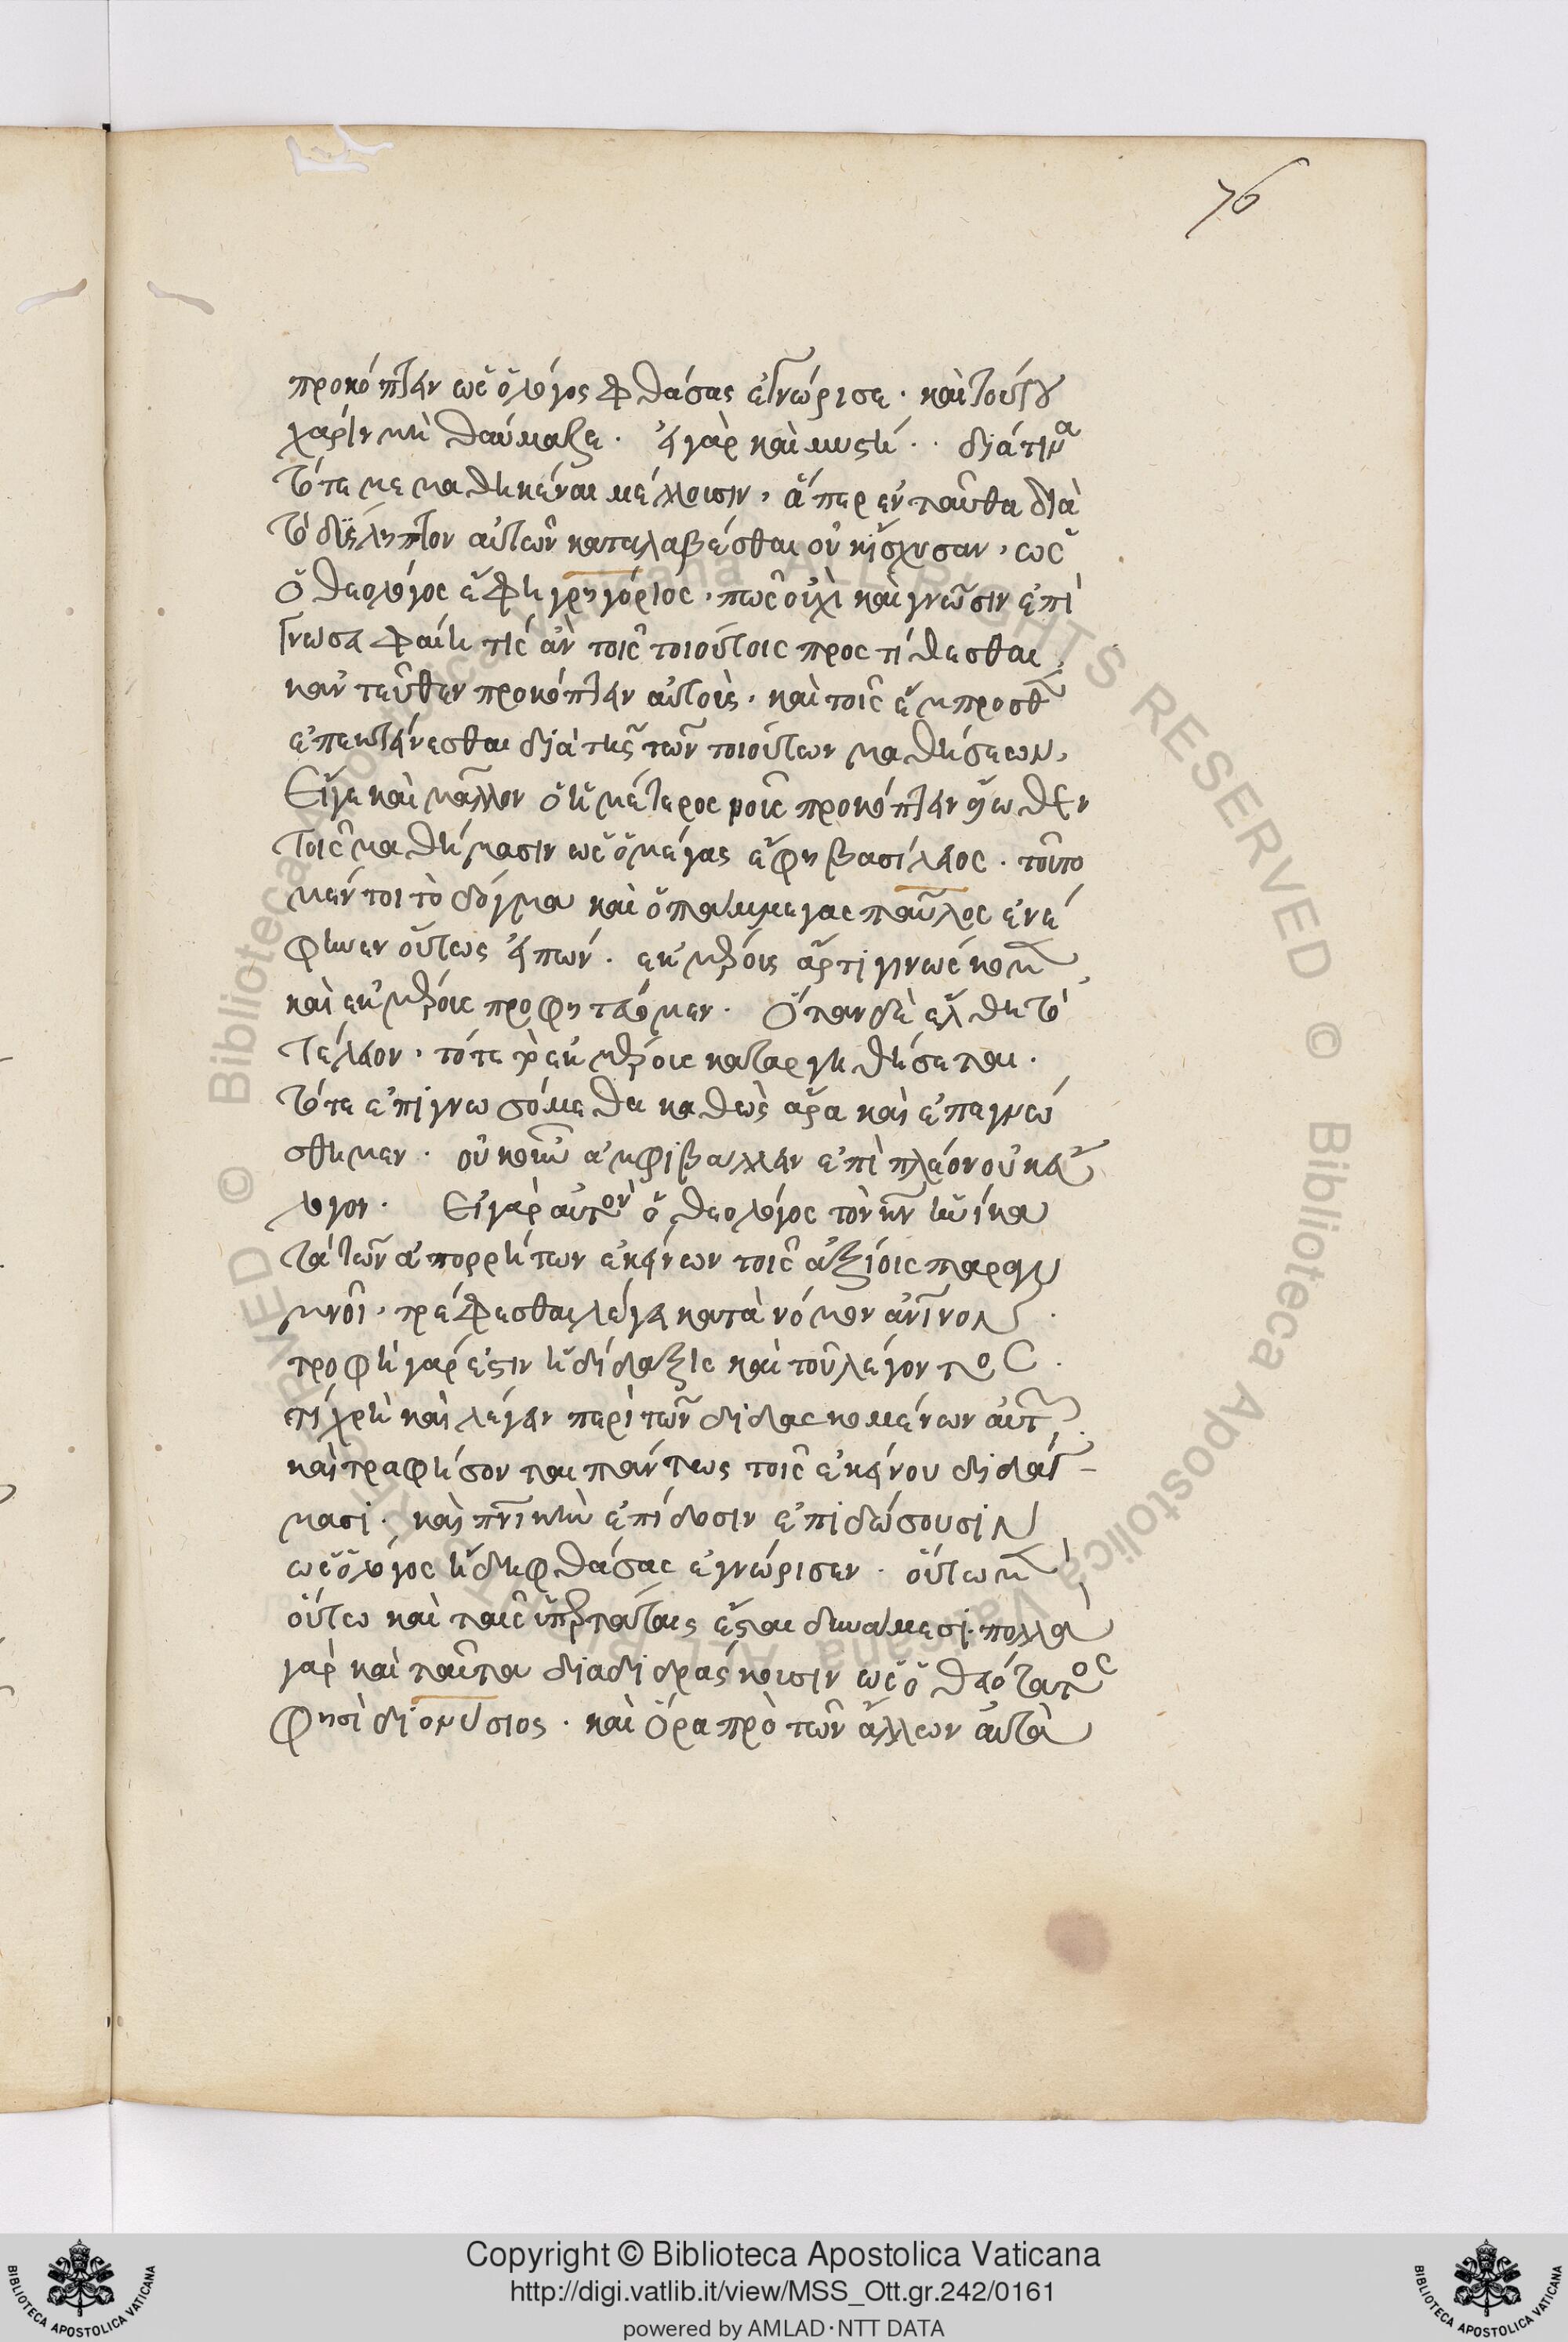 76
προκόπτειν ὡς ὁ λόγος φθάσας ἐγνώρισε· καὶ τούτου
χάριν μὴ θαύμαζε. εἰ γὰρ καὶ μυστή.. διά τινα
τότε μεμαθηκέναι μέλλουσιν, ἅπερ ἐνταῦθα διὰ
τὸ αὐτῶν καταλαβέσθαι οὐκ ἴσχυσαν, ὡς
ὁ θεολόγος ἔφη γρηγόριος, πῶς οὐχὶ καὶ γνῶσιν ἐπὶ
γνώσει φαίη τίς ἂν τοῖς τοιούτοις προστίθεσθαι,
κἀντεῦθεν προκόπτειν αὐτοὺς, καὶ τοῖς ἔμπροσθεν
ἐπεκτείνεσθαι διὰ τῆς τῶν τοιούτων μαθήσεως,
Εἴγε καὶ μᾶλλον ὁ ἡμέτερος νοῦς προκόπτειν εἴωθεν
τοῖς μαθήμασιν ὡς ὁ μέγας ἔφη βασίλειος. τοῦτο
μέν τοι τὸ δόγμα καὶ ὁ παμμέγας παῦλος ἐνέ
φηνεν οὕτως εἰπών. ἐκ μέρους ἄρτι γινώσκομεν,
καὶ ἐκ μέρους προφητεύομεν. Ὅταν δὲ ἔλθη τὸ
τέλειον, τότε τὸ ἐκ μέρους καταργηθήσεται.
τότε ἐπιγνωσόμεθα καθὼς ἄρα καὶ ἐπεγνώ
σθημεν. οὐκοῦν ἀμφιβάλλειν ἐπὶ πλέον οὐκ εὔ
λογον. Εἰ γὰρ αὐτὸν ὁ θεολόγος τὸν κν ἡνίκα
τὰ τῶν ἀπορρήτων ἐκείνων τοῖς ἀξίοις παραγυ
μνοῖ, τρέφεσθαι λέγει κατὰ νόμον ἀνινον.
τροφὴ γάρ ἐστιν ἡ δίδαξις καὶ τοῦ λέγοντος.
τί χρὴ καὶ λέγειν περὶ τῶν διδασκομένων αὐτῶν.
καὶ τραφήσονται πάντως τοῖς ἐκείνου διδάγ-
μασι. καὶ πνικὴν ἐπίδοσιν ἐπιδώσουσιν
ὡς ὁ λόγος ἤδη φθάσας ἐγνώρισεν. οὕτω μὲν
οὕτω καὶ ταῖς ὑπερτάταις ἔσται δυνάμεσι. πολλὰ
γὰρ καὶ ταῦτα διαδιδράσκουσιν ὡς ὁ θειότατος
φησὶ διονύσιος. καὶ ὅρα πρὸ τῶν ἄλλων αὐτὰ
Copyright © Biblioteca Apostolica Vaticana
http://digi.vatlib.it/view/MSS_Ott.gr.242/0161
powered by AMLAD·NTT DATA